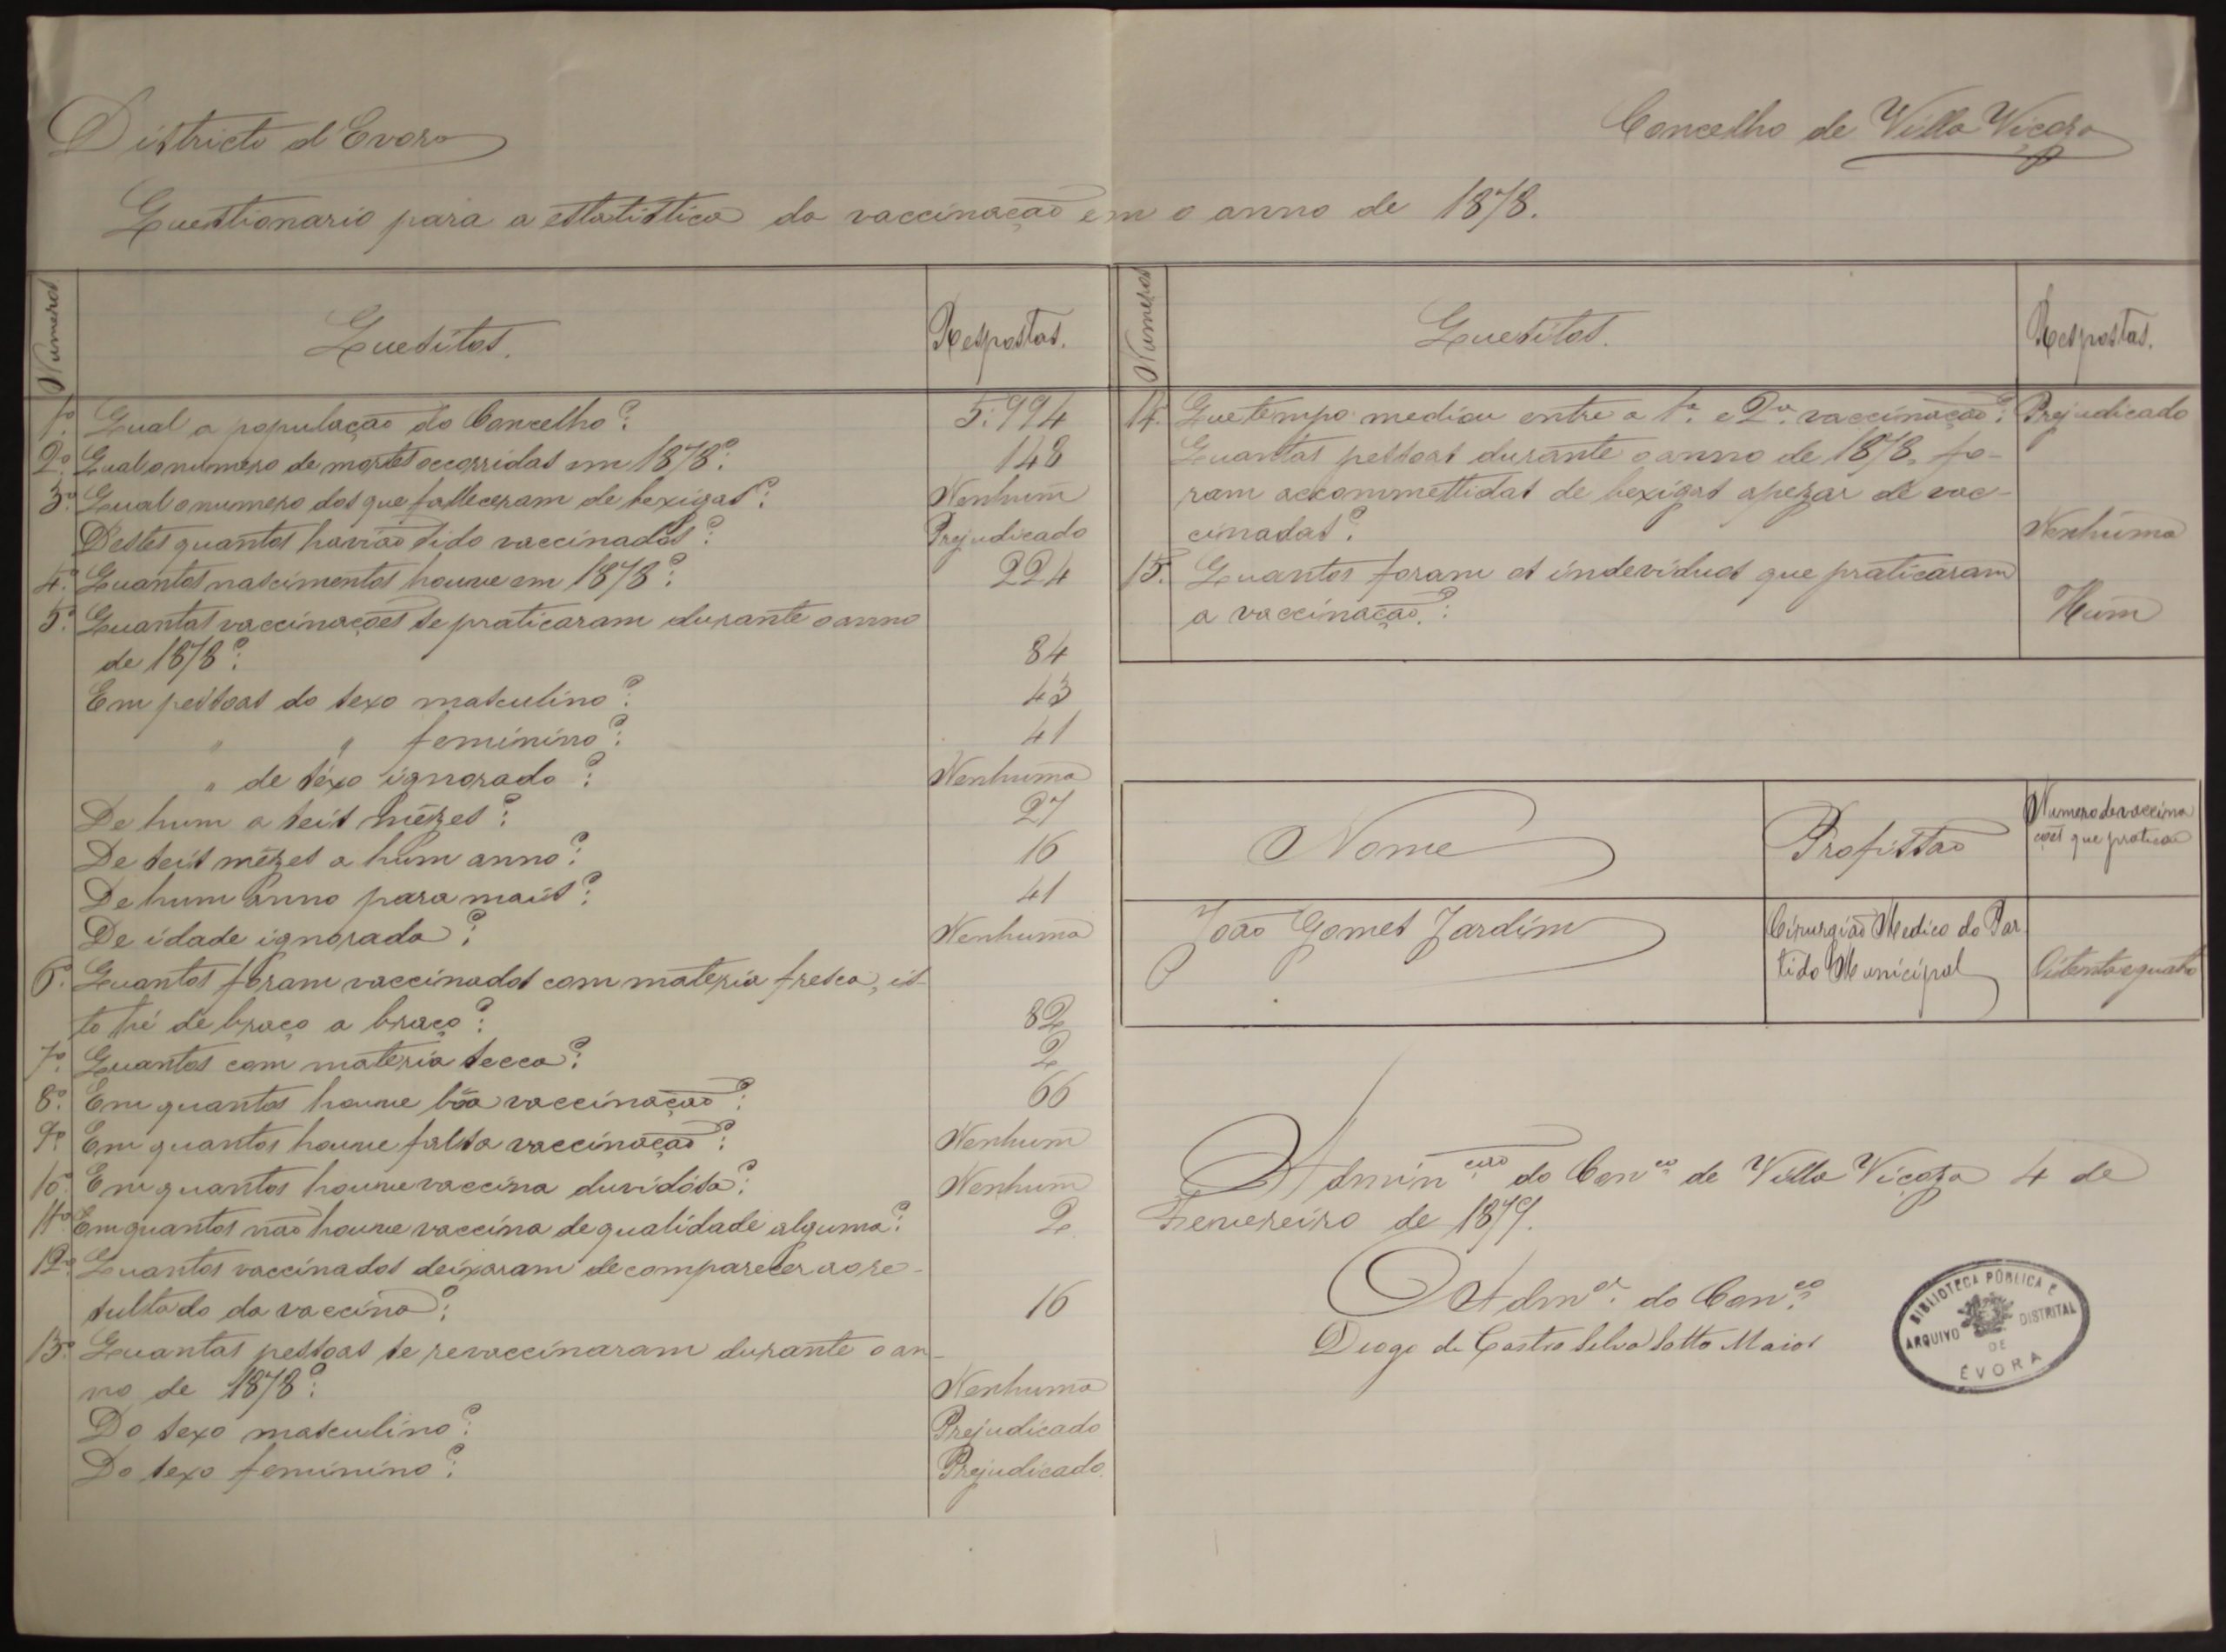 Districto d'Evora
Concelho de Villa Viçoza
Questionario para a estatistica da vaccinação em o anno de 1878.
Numeros
Quesitos.
Respostas.
1º. Qual a população do Concelho? 5:994
2º. Qual o numero de mortes occorridas em 1878? 148
3º. Qual o numero dos que falleceram de bexigas? Nenhum
Destes quantos havião sido vaccinados? Prejudicado
4º. Quantos nascimentos houve em 1878? 224
5º. Quantas vaccinações se praticaram durante o anno
de 1878? 84
Em pessoas do sexo masculino? 43
" " feminino? 41
" de séxo ignorado? Nenhuma
De hum a seis mêzes? 27
De seis mêzes a hum anno? 16
De hum anno para mais? 41
De idade ignorada? Nenhuma
6º. Quantos foram vaccinados com materia fresca, is-
to hé de braço a braço? 82
7º. Quantos com materia secca? 2
8º. Em quantos houve bôa vaccinação? 66
9º. Em quantos houve falsa vaccinação? Nenhum
10º. Em quantos houve vaccina duvidósa? Nenhum
11º. Em quantos não houve vaccina de qualidade alguma? 2
12º. Quantos vaccinados deixaram de comparecer ao re-
sultado da vaccina? 16
13º. Quantas pessoas se revaccinaram durante o an-
no de 1878? Nenhuma
Do sexo masculino? Prejudicado
Do sexo feminino? Prejudicado.
Numeros
Quesitos.
Respostas.
14. Que tempo mediou entre a 1ª. e 2ª. vaccinação? Prejudicado
Quantas pessoas durante o anno de 1878, fo-
ram accommettidas de bexigas apezar de vac-
cinadas? Nenhuma
15. Quantos foram os individuos que praticaram
a vaccinação? Hum
Nome
Profissão
Numero de vaccina
ções que praticou
João Gomes Jardim
Cirurgião Medico do Par
tido Municipal
Oitenta e quatro
Admin.ção do Con.co de Villa Viçoza 4 de
Fevereiro de 1879.
O Adm.or do Con.co
Diogo de Castro Silva Sotto Maior
BIBLIOTECA PÚBLICA E
ARQUIVO DISTRITAL
DE
ÉVORA